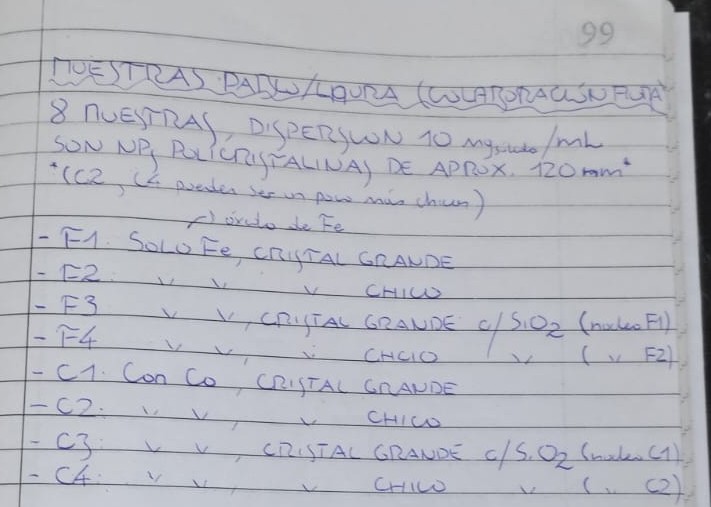 99
MUESTRAS PABLO/LAURA (COLABORACIÓN
8 MUESTRAS, DISPERSION 10 mg/mL
SON NPs POLICRISTALINAS DE APROX. 120 nm*
*(C2, C4 pueden ser un poco más chicas)
óxido de Fe
- F1. SOLO Fe, CRISTAL GRANDE
- F2: " " " CHICO
- F3 " ", CRISTAL GRANDE c/ SiO2 (nucleo F1)
- F4 " " " CHCIO " ( " F2)
- C1. Con Co, CRISTAL GRANDE
- C2: " ", " CHICO
- C3: " ", CRISTAL GRANDE c/ SiO2 (nucleo C1)
- C4: " ", " CHICO " ( " C2)